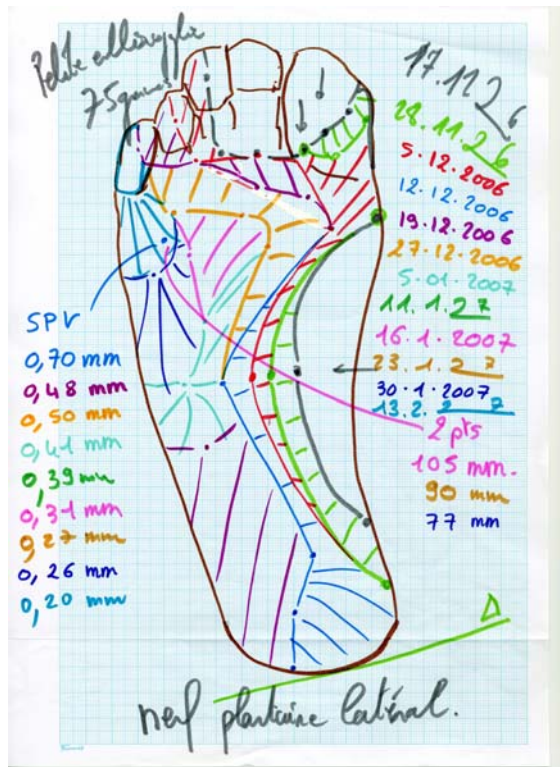 75 grammes
17.11.2 6
28.11.2 6
5.12.2006
12.12.2006
19.12.2006
27.12.2006
5.01.2007
11.1.2 7
16.1.2007
23.1.2 7
30.1.2007
13.2. 2 7
2 pts
105 mm.
90 mm
77 mm
SPV
0,70 mm
0,48 mm
0,50 mm
0,41 mm
0,39 mm
0,31 mm
0,27 mm
0,26 mm
0,20 mm
Δ
nerf plantaire latéral.